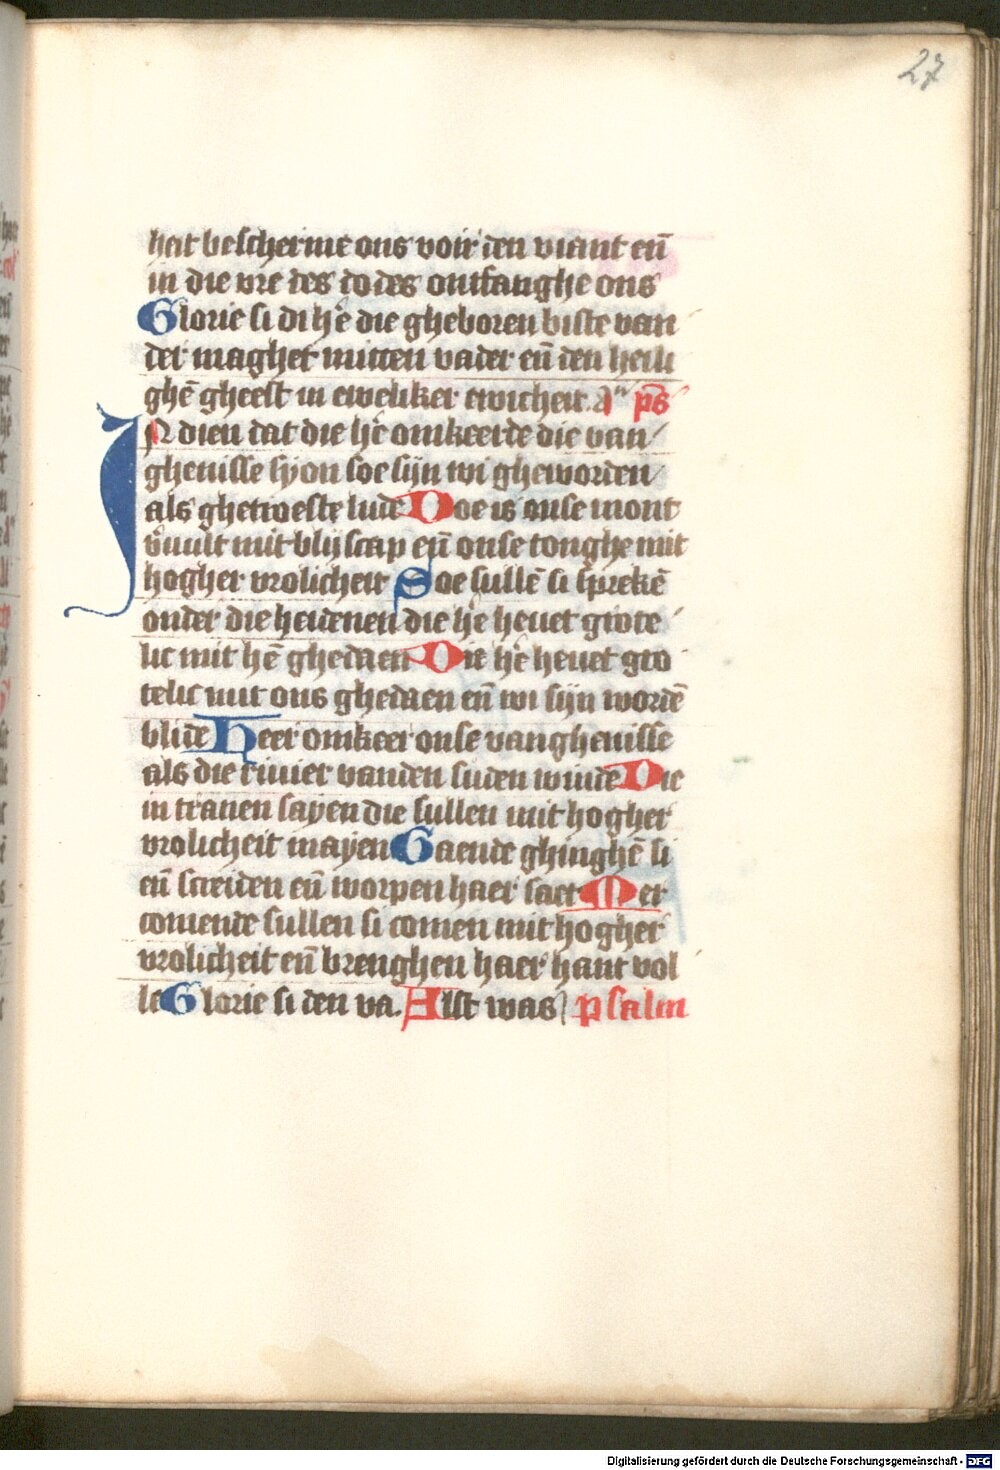 27
heit bescherme ons voir den viant en̄
in die vre des dodes ontfanghe ons
Glorie si di hē die gheboren biste van
der maghet mitten vader en̄ den heili
ghē gheest in eweliker ewicheit. an ps̄
IN dien dat die hē omkeerde die van
ghenisse syon soe sijn wi gheworden
als ghetroeste lude Doe is onse mont
v̄vult mit blijscap en̄ onse tonghe mit
hogher vrolicheit Soe sullē si sprekē
onder die heidenen die hē heuet grote
lic mit hē ghedaen Die hē heuet gro
telic mit ons ghedaen en̄ wi sijn wordē
blide Heer omkeer onse vanghenisse
als die riuier vanden suden winde Die
in tranen sayen die sullen mit hogher
vrolicheit mayen Gaende ghinghē si
en̄ screiden en̄ worpen haer saet Mer
comende sullen si comen mit hogher
vrolicheit en̄ brenghen haer hant vol
le Glorie si den va. Alst was psalm
Digitalisierung gefördert durch die Deutsche Forschungsgemeinschaft - DFG